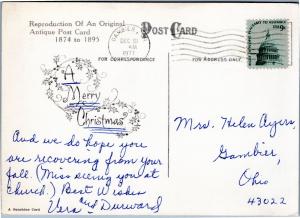 Reproduction Of An Original
Antique Post Card
1874 to 1895
POST CARD
GAMBIER
DEC 10
AM
1977
FOR CORRESPONDENCE
FOR ADDRESS ONLY
9¢
A
Merry
Christmas
And we do hope you
are recovering from your
fall. (Miss seeing you at
church.) Best Wishes
Vera and Durward
Mrs. Helen Ayers,
Gambier,
Ohio
43022